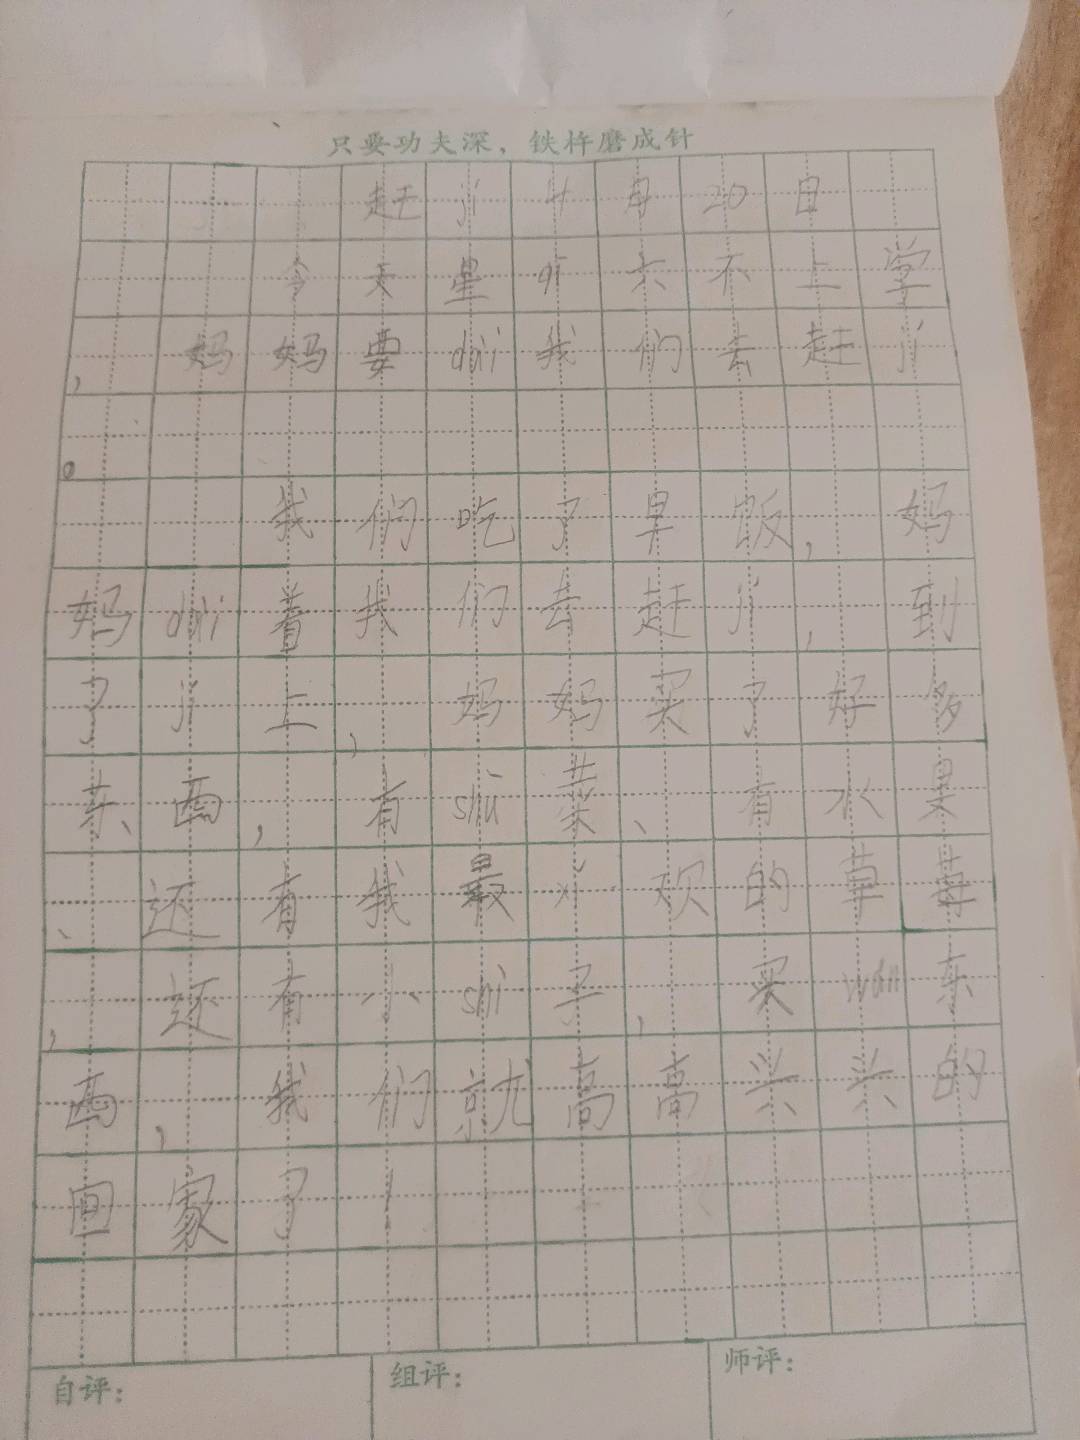 只要功夫深，铁杵磨成针
赶jí 4月20日
今天星qī六不上学
，妈妈要dài我们去赶jí
。
我们吃了早饭，妈
妈dài着我们去赶jí，到
了jí上，妈妈买了好多
东西，有shū菜、有水果
、还有我最xǐ欢的草莓
，还有小shì子，买wán东
西，我们就高高兴兴的
回家了！
自评： 组评： 师评：